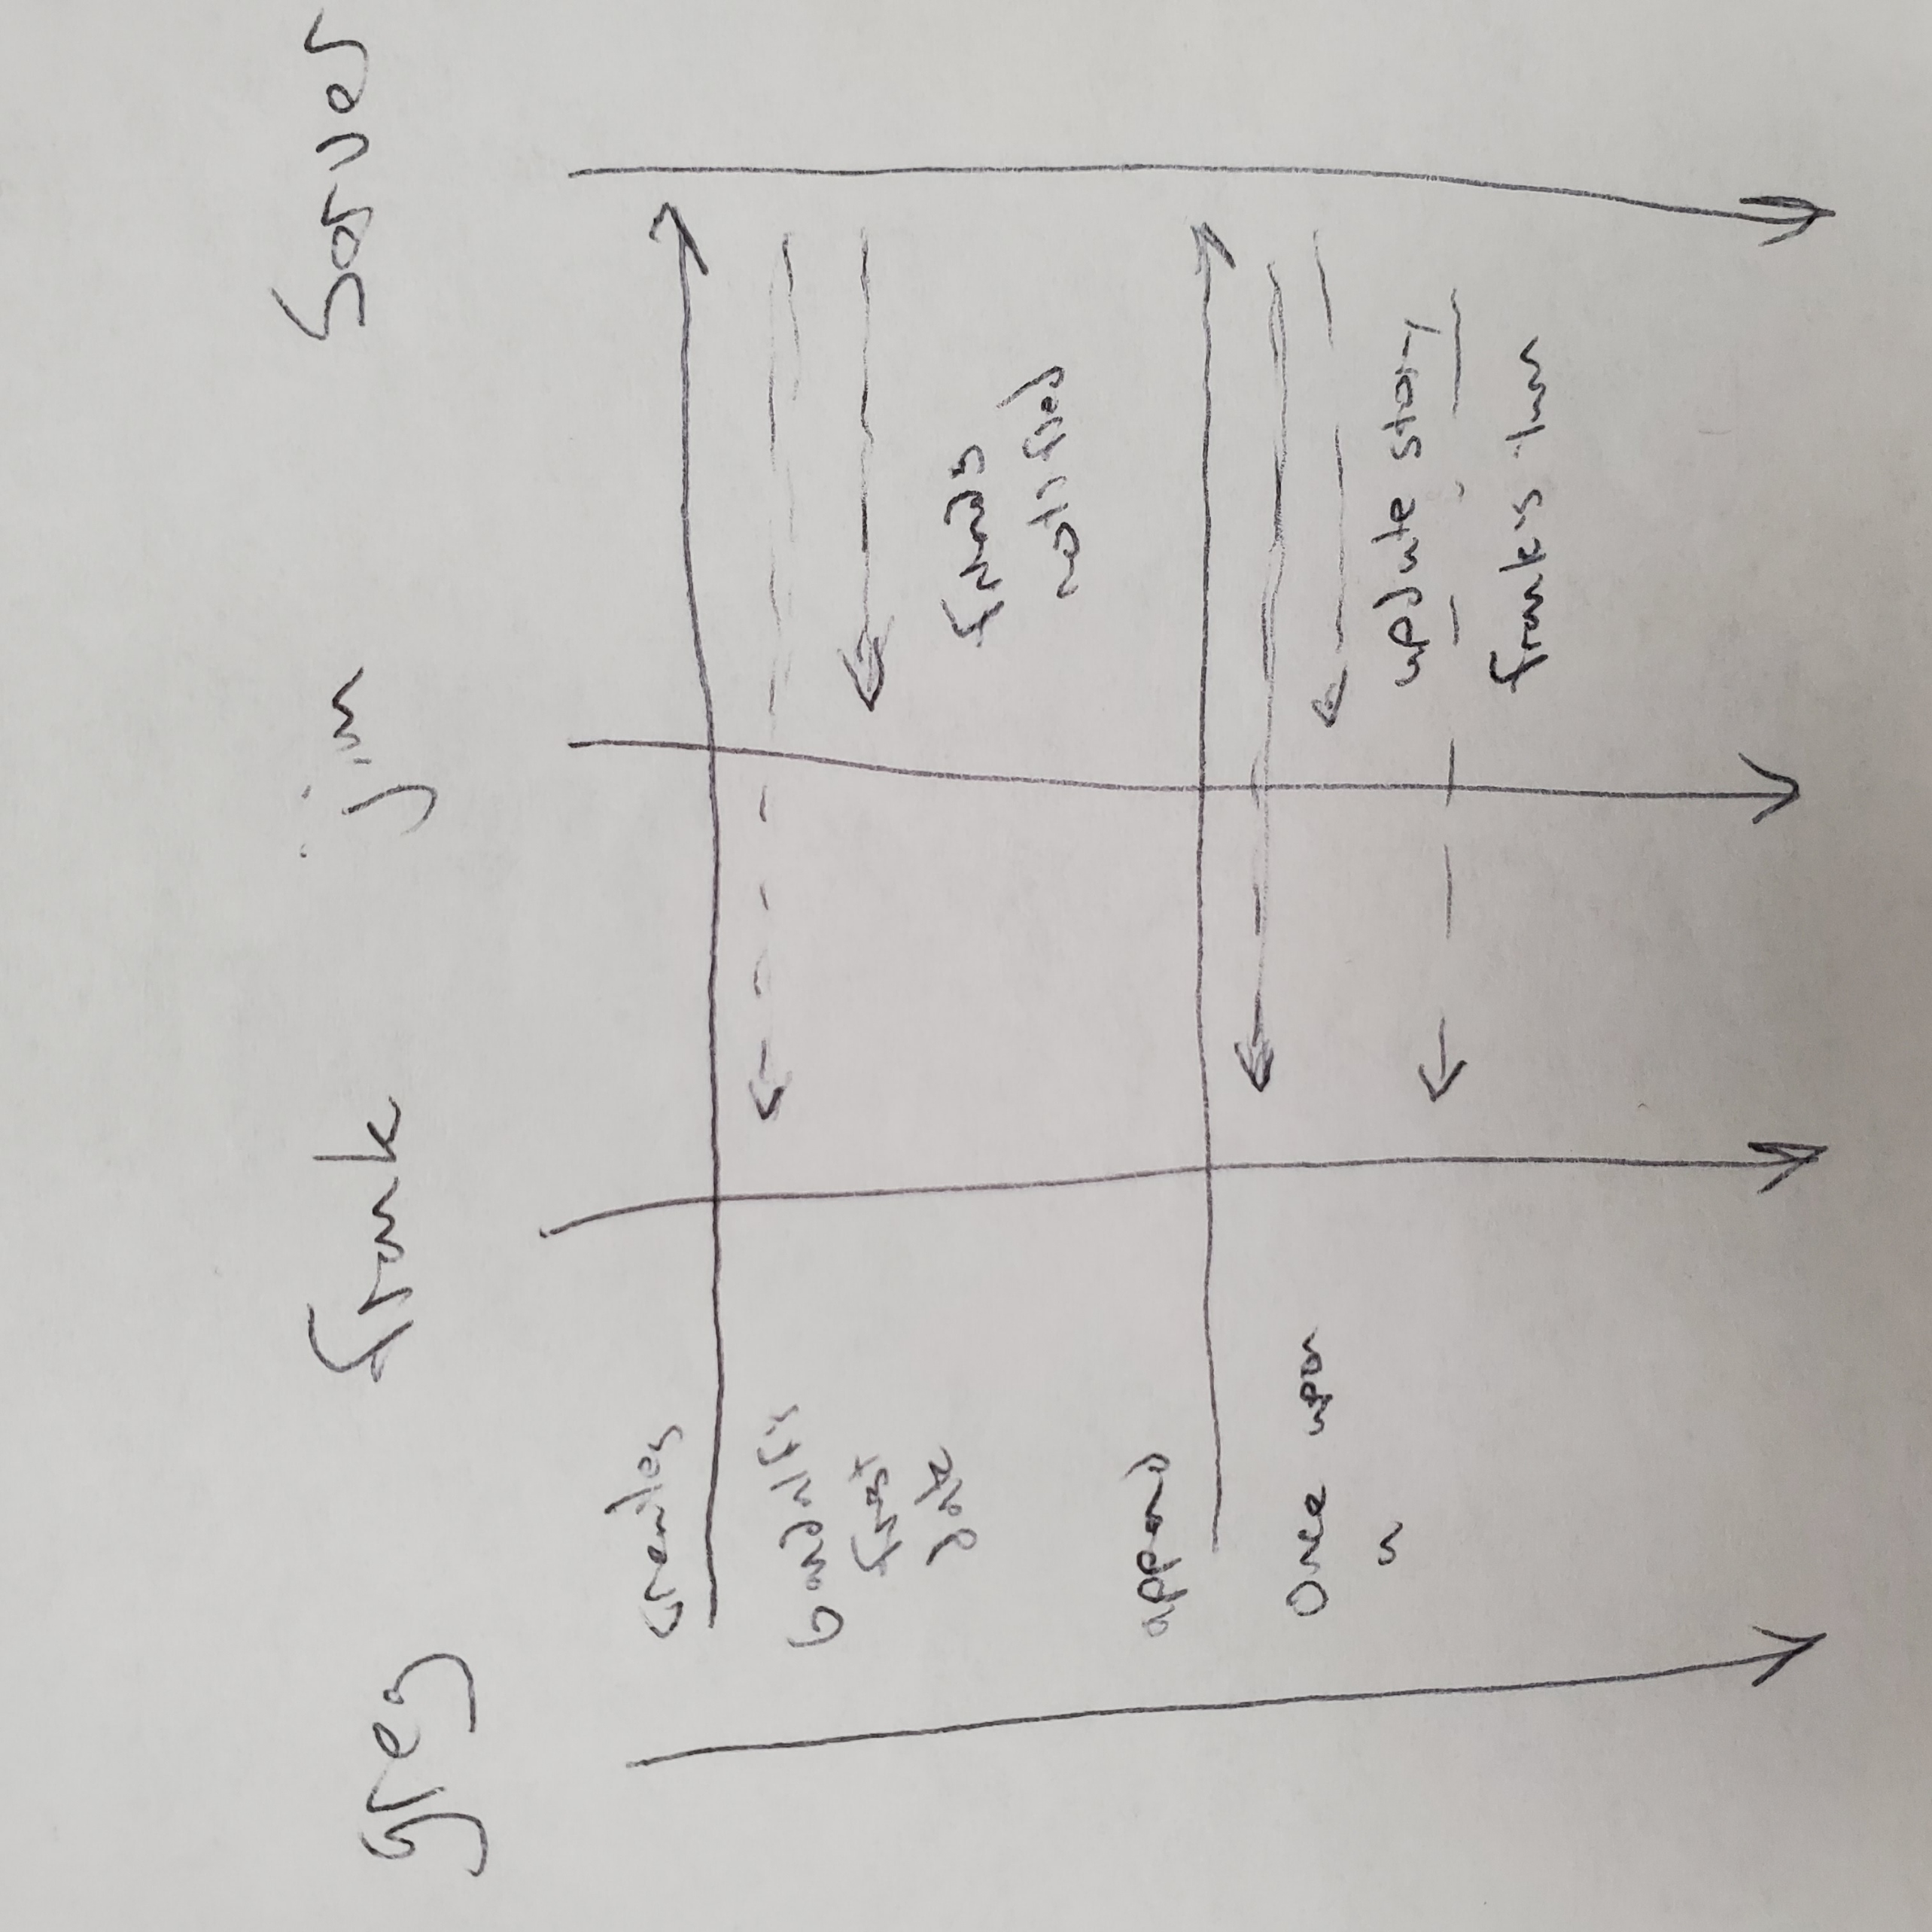 greg
frank
jim
Server
creates
Gandalf's
first
date
friends
notified
append
Once upon
a
update story
frank's turn